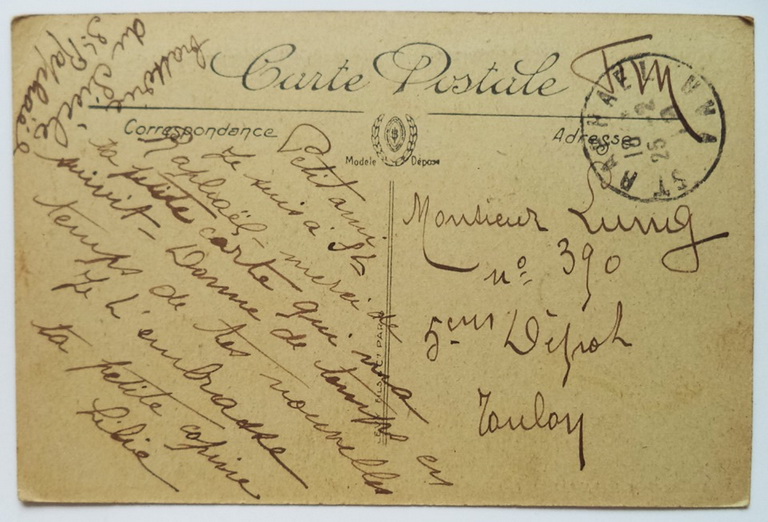 Carte Postale
Correspondance
Adresse
Modèle Déposé
FM
ST RAPHAEL VAR
18 2
25
Petit ami
Je suis à St
Raphaël - merci de
ta petite carte qui m'a
suivit - Donne de temps en
temps de tes nouvelles
Je t'embrasse
ta petite copine
Lilie
du Siècle
St Raphaël
Monsieur Lunig
n° 390
5ème Dépôt
Toulon